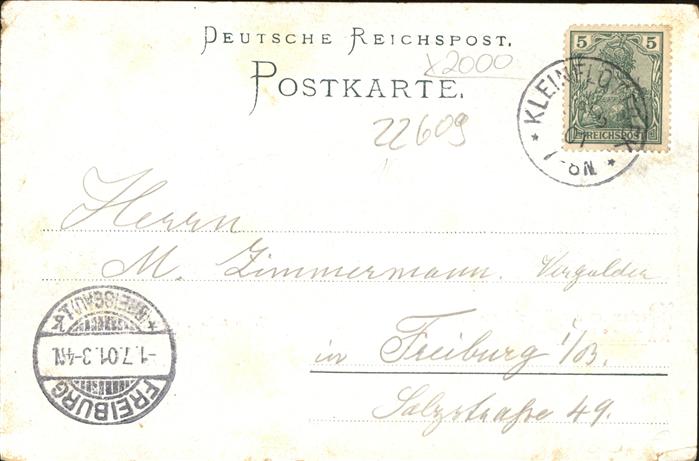 DEUTSCHE REICHSPOST.
x2000
POSTKARTE.
22609
5 5
REICHSPOST
* KLEINFLOTTBEK *
01
7-8N
Herrn
M. Zimmermann. Vergolder
in Freiburg i/B.
Salzstraße 49.
* (BREISGAU) 1.K
-1.7.01.3-4N.
FREIBURG